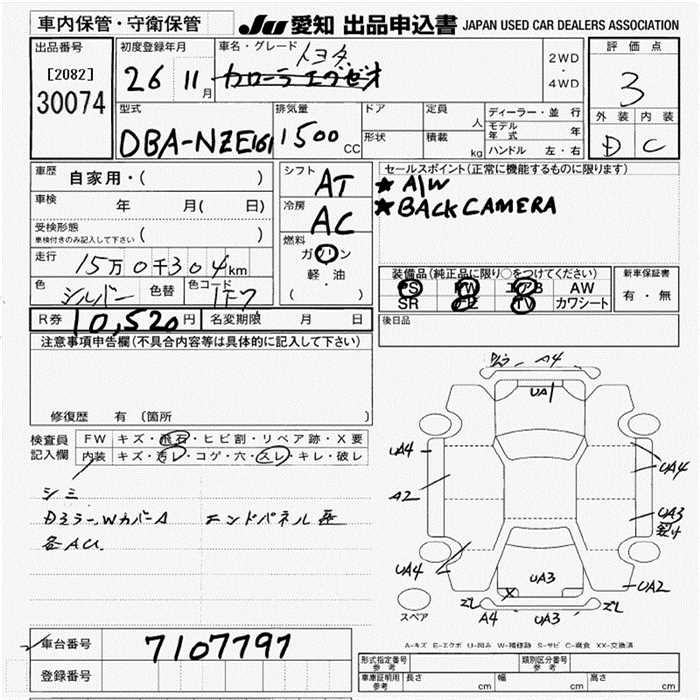 車内保管・守衛保管 JU 愛知 出品申込書 JAPAN USED CAR DEALERS ASSOCIATION
出品番号 [2082] 30074
初度登録年月 26 11月
車名・グレード トヨタ
カローラ
2WD・4WD
評価点 3
外装 内装
D C
型式 DBA-NZE161
排気量 1500 CC
ドア 形状
定員 人 積載 kg
ディーラー・並行
モデル年式 年
ハンドル 左・右
車歴 自家用・( )
車検 年 月( 日)
受検形態 車検付きのみ記入して下さい ( )
走行 15万0千304km
色 シルバー 色替 色コード 1F7
シフト AT
冷房 AC
燃料 ガソリン
軽・油
( )
セールスポイント(正常に機能するものに限ります)
★ A/W
★ BACK CAMERA
装備品(純正品に限り○をつけてください)
PS PW エアB AW
SR ナビ TV カワシート
新車保証書 有・無
R券 10,520円 名変期限 月 日
後日品
注意事項申告欄(不具合内容等は具体的に記入して下さい)
修復歴 有(箇所
検査員記入欄
FW キズ・飛石・ヒビ割・リペア跡・X要
内装 キズ・汚レ・コゲ・穴・スレ・キレ・破レ
シミ
Dミラー、Wカバー A エンドパネル
各AU.
A4
UA1
UA4
A2
UA4
UA4
UA3
UA3
UA2
ズレ
A4 UA3 ズレ
スペア
A-キズ E-エクボ U-凹み W-補修跡 S-サビ C-腐食 XX-交換済
車台番号 7107797
登録番号
形式指定番号 参考 類別区分番号 参考
車庫証明用 参考 長さ cm 幅 cm 高さ cm